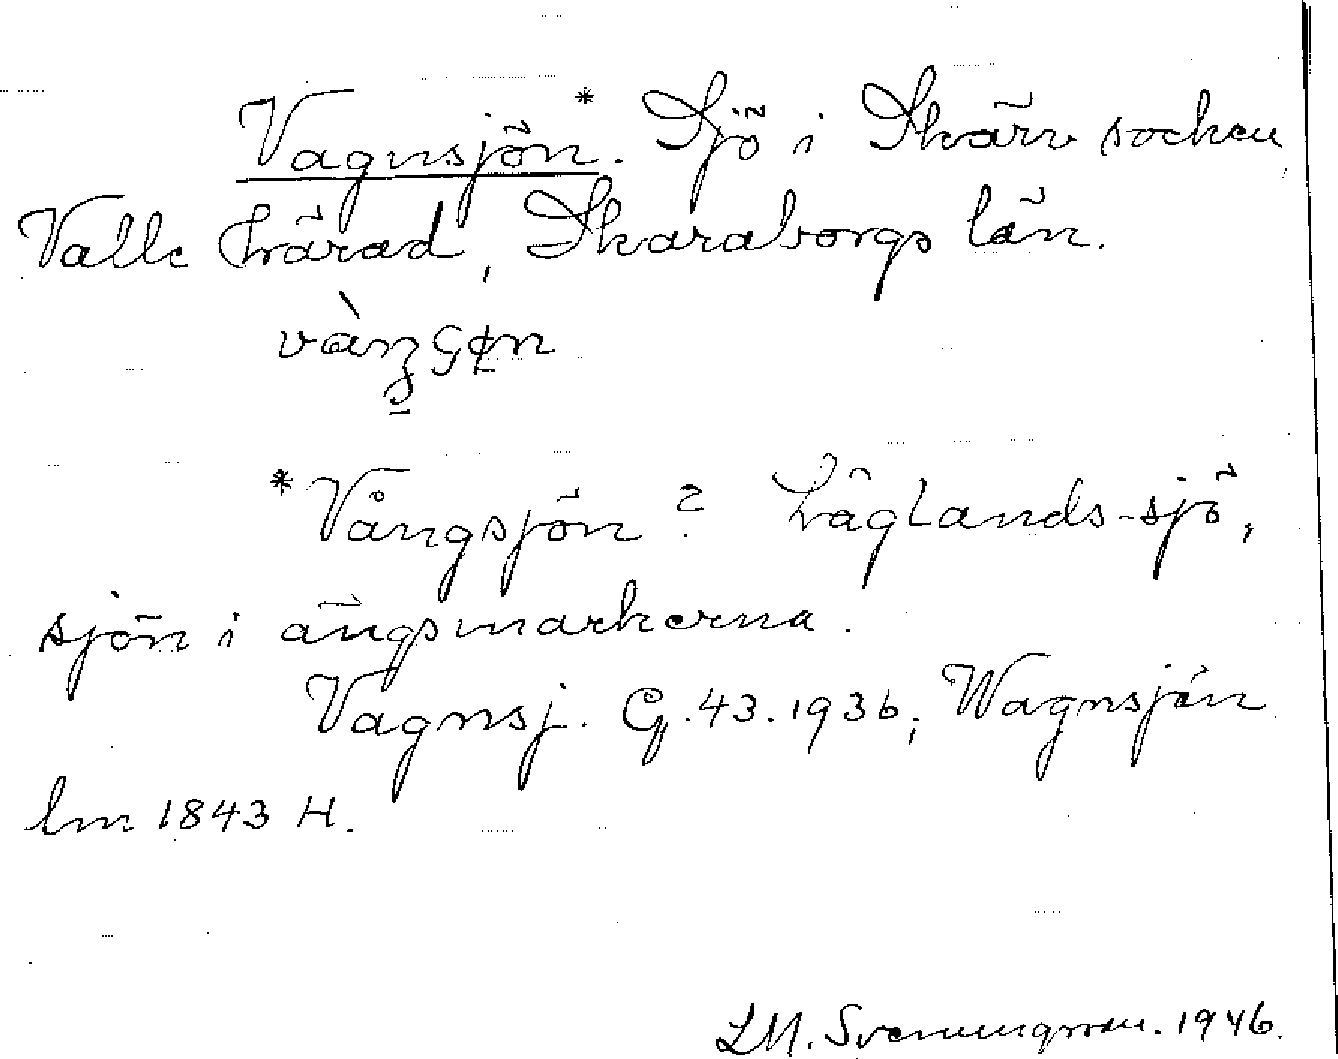 Vagnsjön*. Sjö i Skärv socken,
Valle härad, Skaraborgs län.
*Vångsjön? Låglands-sjö,
sjön i ängsmarkerna.
Vagnsj. G. 43. 1936; Wagnsjön
lm 1843 H.
LM. Svenungsson. 1946.